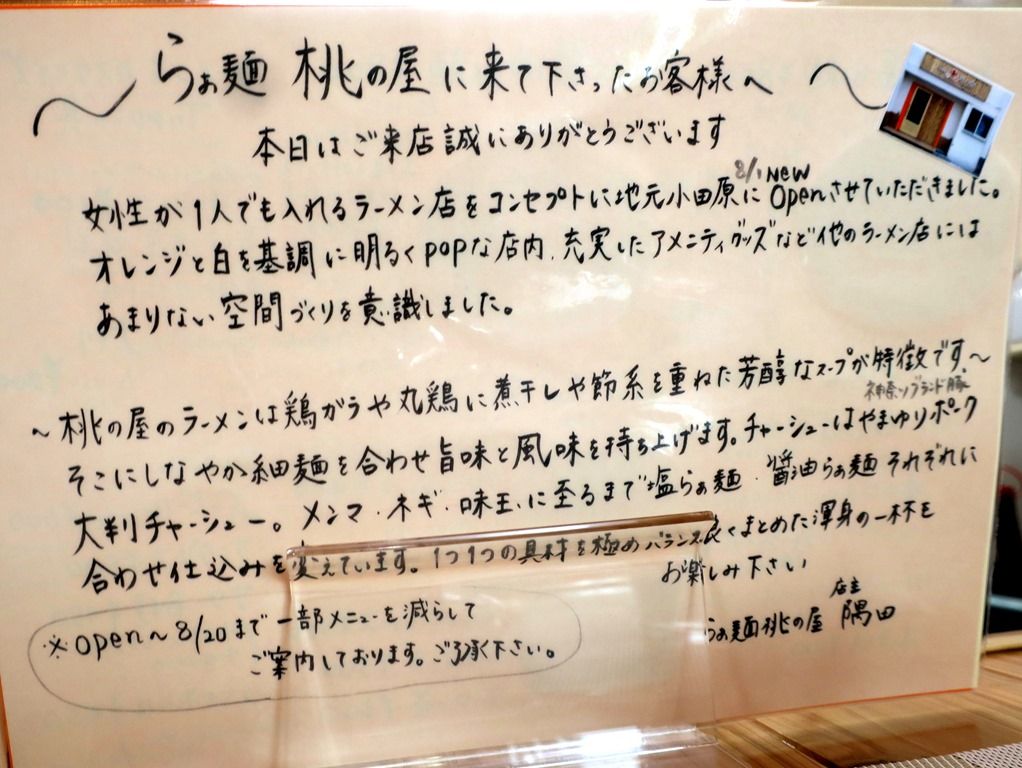 〜らぁ麺 桃の屋に来て下さったお客様へ〜
本日はご来店誠にありがとうございます
8/1 NEW
女性が1人でも入れるラーメン店をコンセプトに地元小田原にOpenさせていただきました。
オレンジと白を基調に明るくpopな店内、充実したアメニティグッズなど他のラーメン店には
あまりない空間づくりを意識しました。
〜桃の屋のラーメンは鶏ガラや丸鶏に煮干しや節系を重ねた芳醇なスープが特徴です。〜
神奈川ブランド豚
そこにしなやか細麺を合わせ旨味と風味を持ち上げます。チャーシューはやまゆりポーク
大判チャーシュー。メンマ・ネギ・味玉に至るまで塩らぁ麺・醤油らぁ麺それぞれに
合わせ仕込みを変えています。1つ1つの具材を極めバランス良くまとめた渾身の一杯を
お楽しみ下さい
※open〜8/20まで一部メニューを減らして
ご案内しております。ご了承下さい。
らぁ麺桃の屋 店主 隅田